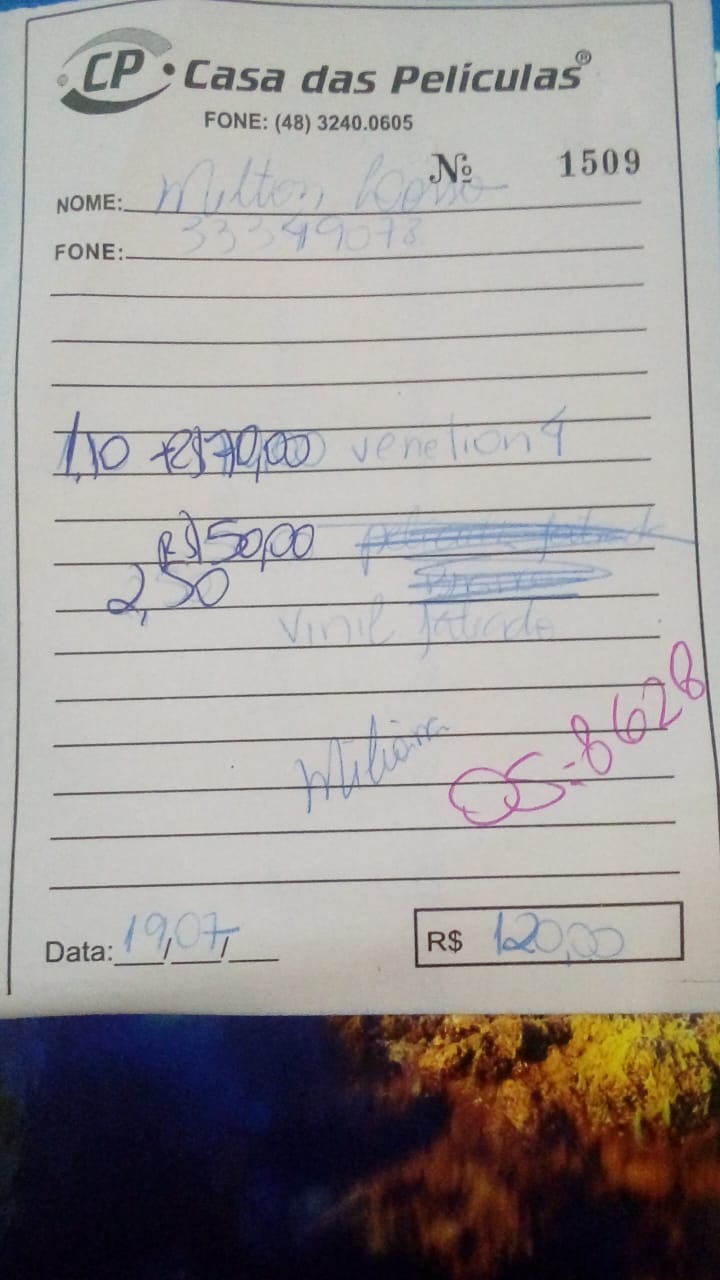 CP • Casa das Películas®
FONE: (48) 3240.0605
Nº 1509
NOME: Milton
FONE: 33349078
1,10 R$70,00 venetion 4
R$50,00
2,50
vinil jatiado
OS-8628
Data: 19/07/
R$ 120,00